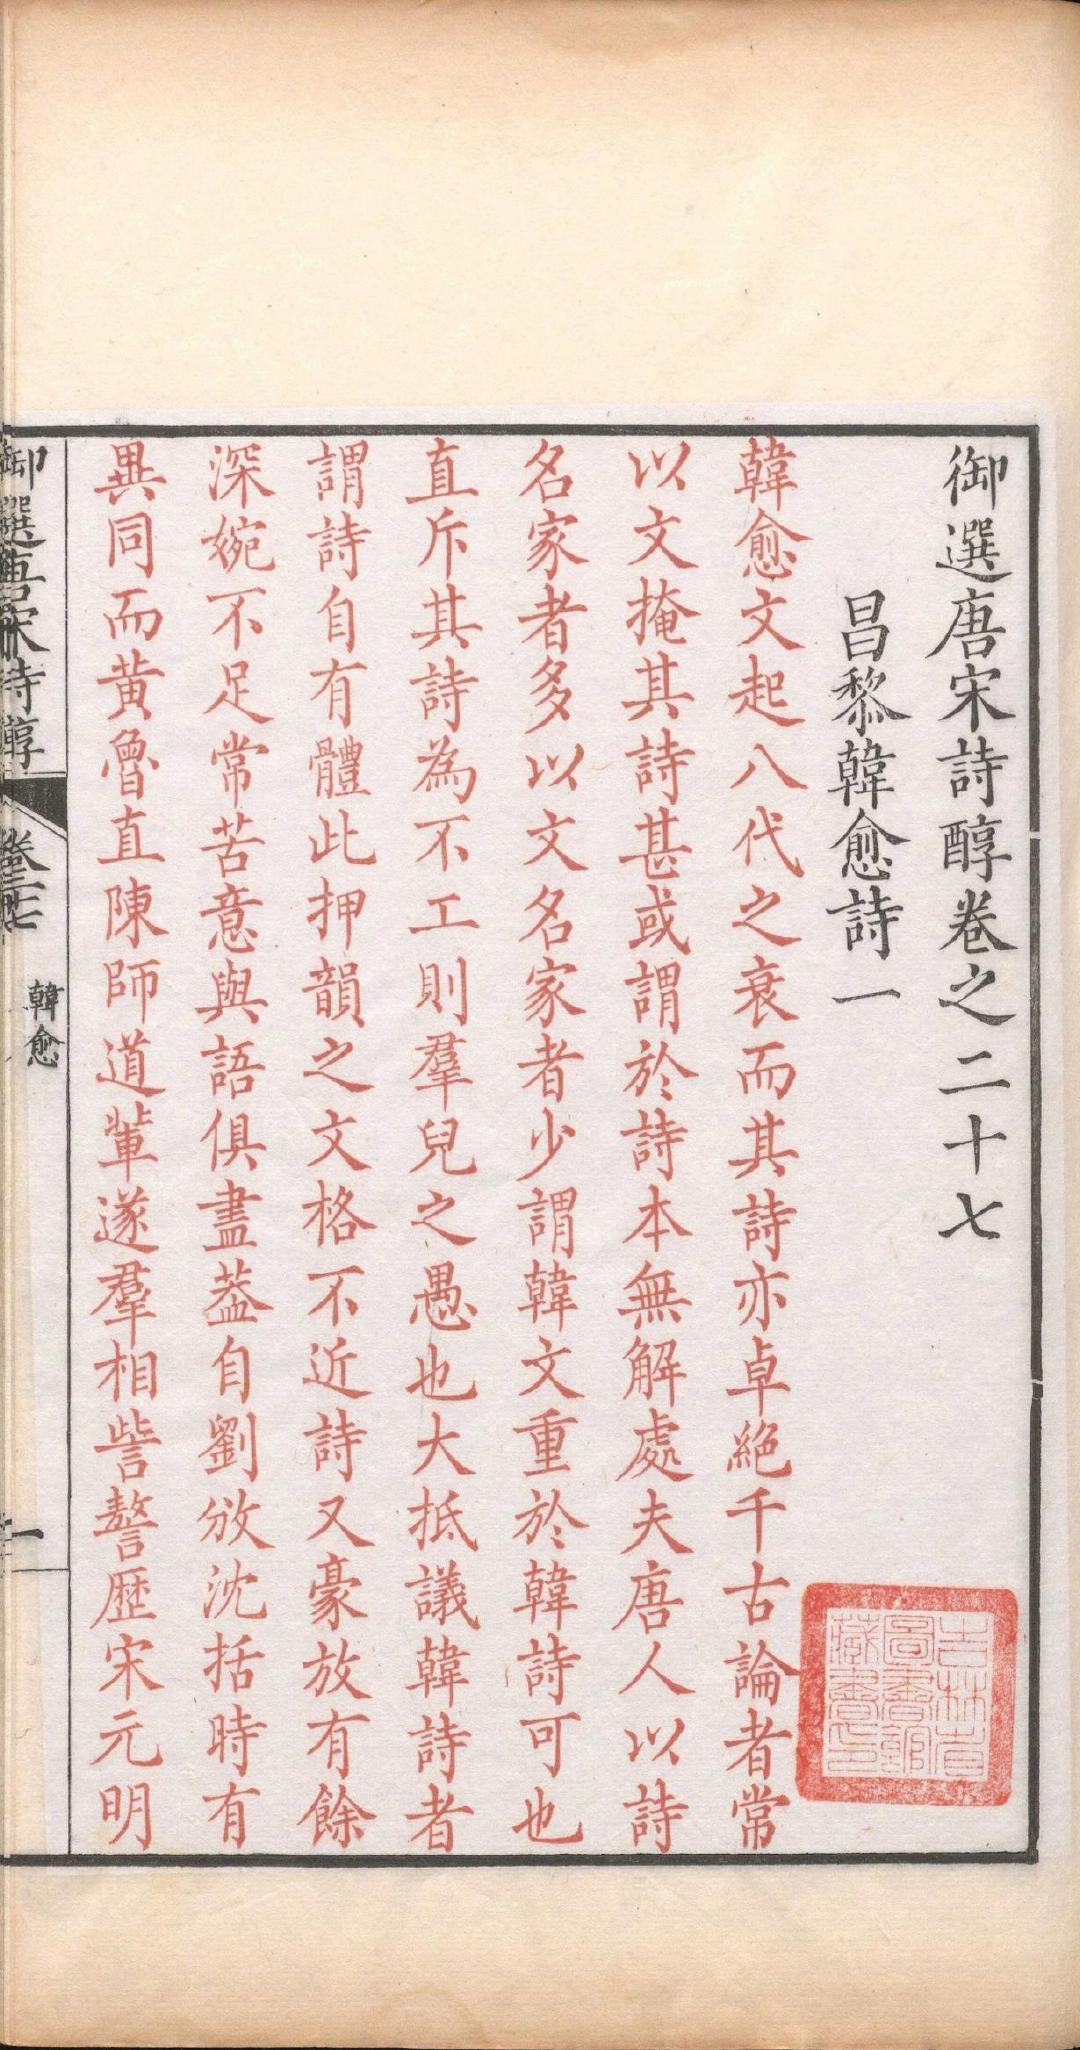 御選唐宋詩醇卷之二十七
昌黎韓愈詩一
韓愈文起八代之衰而其詩亦卓絕千古論者常
以文掩其詩甚或謂於詩本無解處夫唐人以詩
名家者多以文名家者少謂韓文重於韓詩可也
直斥其詩為不工則羣兒之愚也大抵議韓詩者
謂詩自有體此押韻之文格不近詩又豪放有餘
深婉不足常苦意與語俱盡葢自劉攽沈括時有
異同而黃魯直陳師道輩遂羣相訾謷歷宋元明
御選唐宋詩醇 卷二十七 韓愈 一
吉林省
圖書館
藏書之印